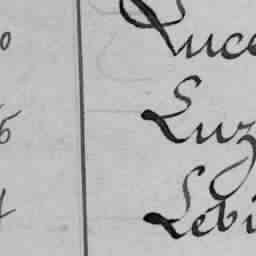 0 Luce
5 Luz
Lebi